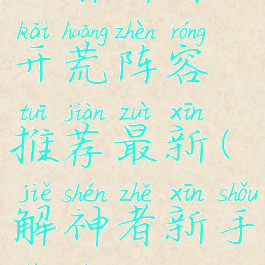 kāi huāng zhèn róng
开荒阵容
tuī jiàn zuì xīn
推荐最新(
jiě shén zhě xīn shǒu
解神者新手